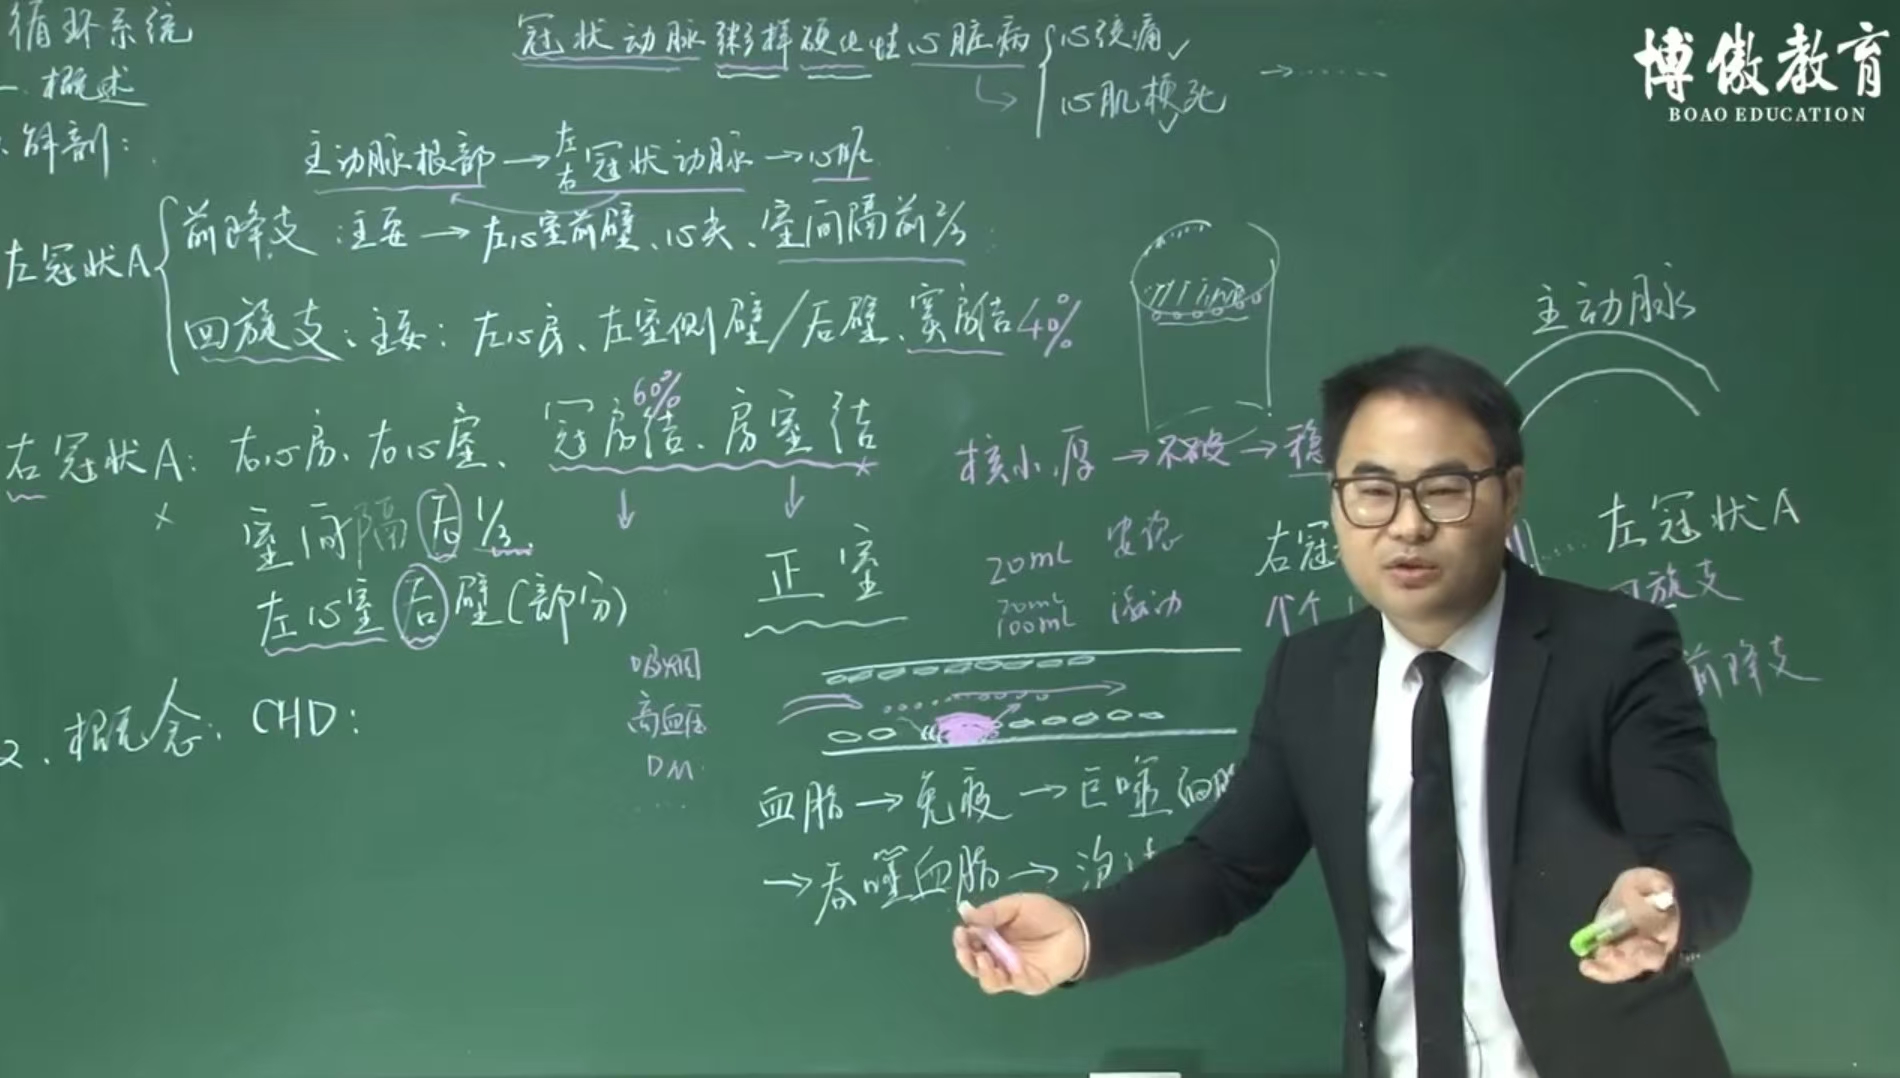 循环系统
一. 概述
解剖:
冠状动脉粥样硬化性心脏病
心绞痛 ✓
心肌梗死 ✓
主动脉根部 → 左右冠状动脉 → 心脏
左冠状A
前降支:主要 → 左心室前壁、心尖、室间隔前2/3
回旋支:主要:左心房、左室侧壁/后壁、窦房结40%
60%
右冠状A:右心房、右心室、窦房结、房室结
室间隔后1/3
左心室后壁(部分)
正室
2. 概念:CHD:
吸烟
高血压
DM
血脂 → 免疫 → 巨噬细胞
→ 吞噬血脂 →
核小,厚 → 不破 → 稳
20mL 安静
70mL
100mL 激动
主动脉
右冠
左冠状A
回旋支
前降支
博傲教育
BOAO EDUCATION